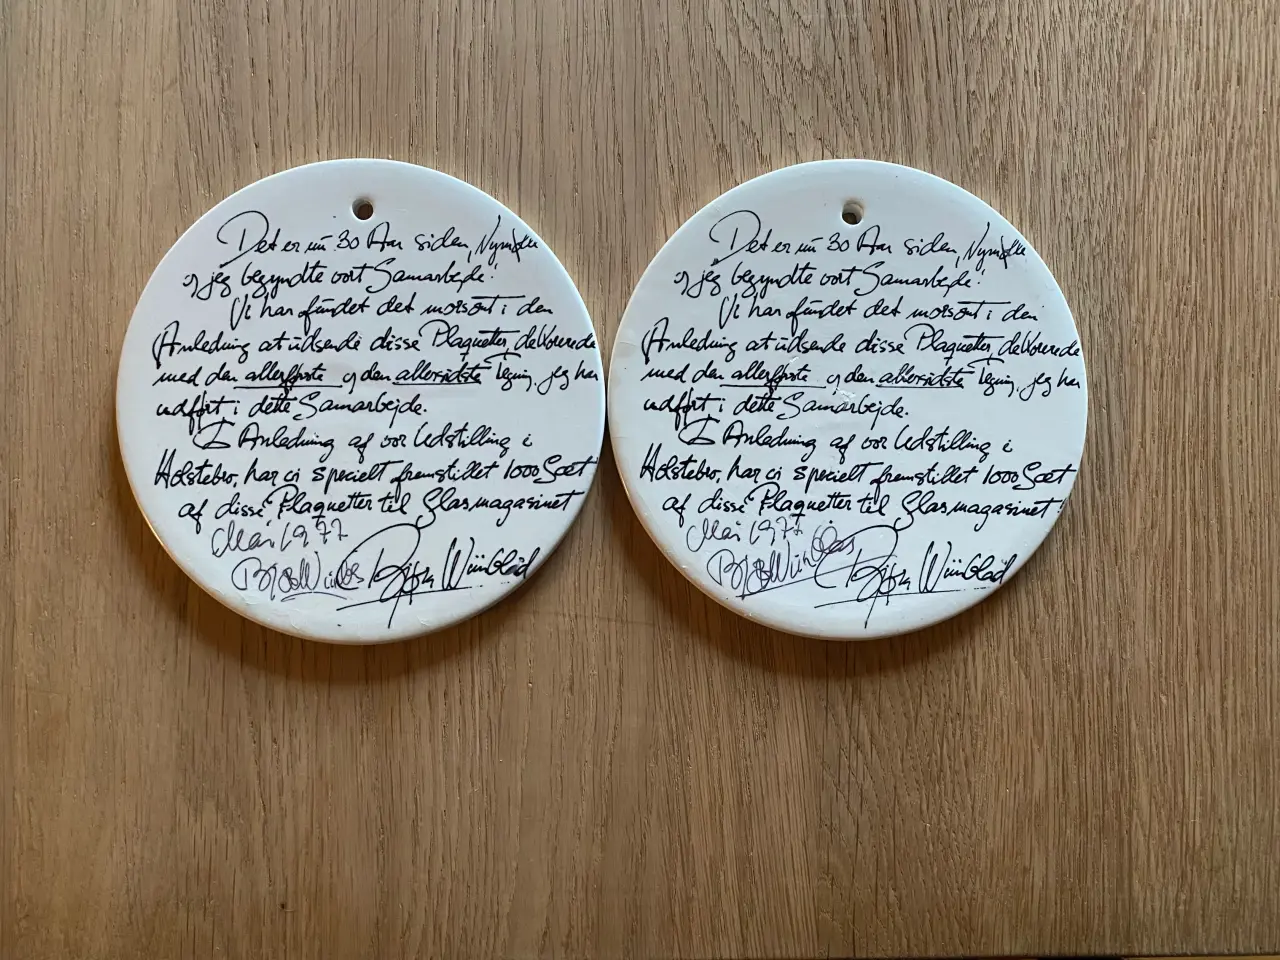 Det er nu 30 Aar siden, Nymølle
og jeg begyndte vort Samarbejde.
Vi har fundet det morsomt i den
Anledning at udsende disse Plaquetter, dekorerede
med den allerførste og den allersidste Tegning, jeg har
udført i dette Samarbejde.
I Anledning af vor Udstilling i
Holstebro, har vi specielt fremstillet 1000 Sæt
af disse Plaquetter til Glasmagasinet
Mai 1977
Bjørn Wiinblad
Bjørn Wiinblad
Det er nu 30 Aar siden, Nymølle
og jeg begyndte vort Samarbejde.
Vi har fundet det morsomt i den
Anledning at udsende disse Plaquetter, dekorerede
med den allerførste og den allersidste Tegning, jeg har
udført i dette Samarbejde.
I Anledning af vor Udstilling i
Holstebro, har vi specielt fremstillet 1000 Sæt
af disse Plaquetter til Glasmagasinet!
Mai 1977
Bjørn Wiinblad
Bjørn Wiinblad